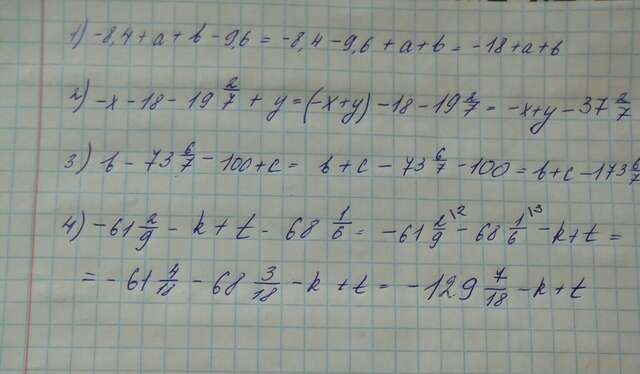 1) -8,4 + a + b - 9,6 = -8,4 - 9,6 + a + b = -18 + a + b
2) -x - 18 - 19 2/7 + y = (-x + y) - 18 - 19 2/7 = -x + y - 37 2/7
3) b - 73 6/7 - 100 + c = b + c - 73 6/7 - 100 = b + c - 173 6/7
4) -61 2/9 - k + t - 68 1/6 = -61 2/9 \2 - 68 1/6 \3 - k + t =
= -61 4/18 - 68 3/18 - k + t = -129 7/18 - k + t